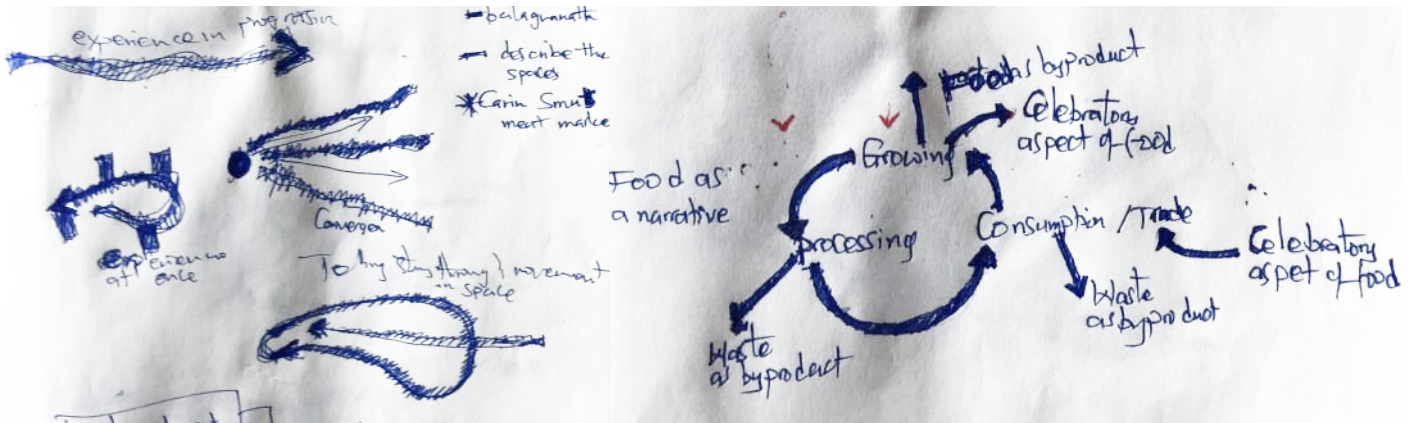 experience in progression
- balagranath
- describe the
spaces
* Carin Smuts
meat marke
Converger
experience
at once
Telling story through movement
in space
Food as
a narrative
Growing
as byproduct
Celebratory
aspect of food
processing
Consumption / Trade
Celebratory
aspet of food
Waste
as byproduct
Waste
as byproduct